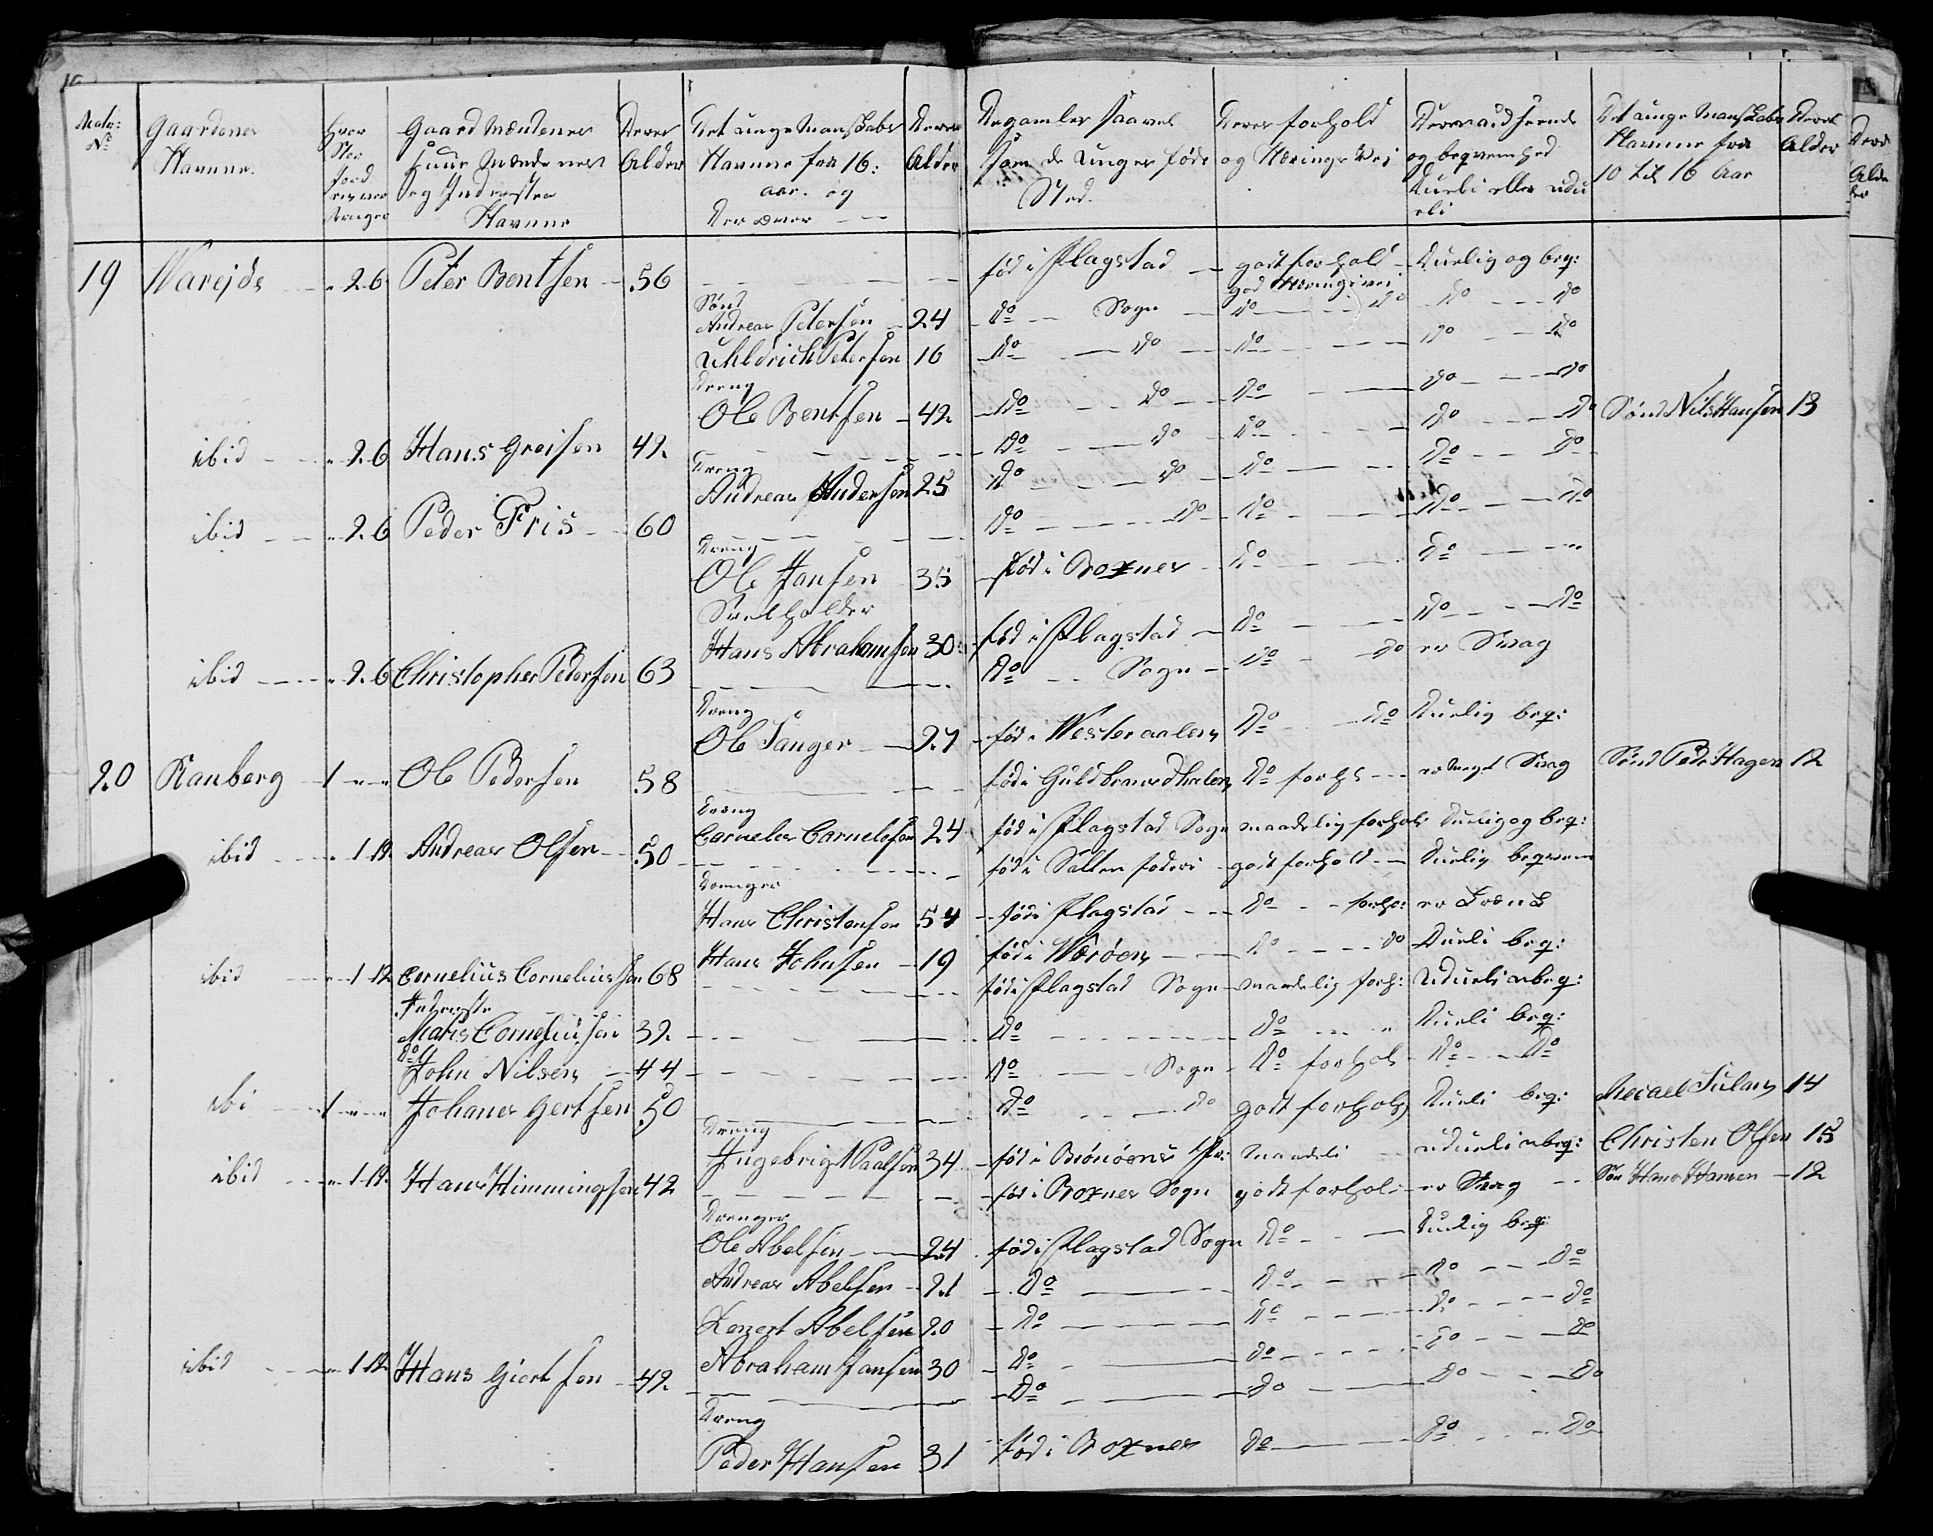 Matr: Nº | Gaardenes Navne. | Hver Stor Jord | Gaard Mændenes Huus Mændenes og Inderster Navne | Deres Alder | Det unge Mandskabs Navne fra 16: aar. og Derover | Deres Alder | De gamles saavel som de Unges føde Sted. | Deres forhold og Nærings Vei | Deres udseende og beqvemhed Dueli eller udueli | Det unge Mandskabs Navne fra 10 til 16 Aar | Deres Alder
19 Warejde - " 2 6 Peter Bentsen - 56 - - - fød i Flagstad - godt forhold god Næringsvei - Duelig og beq:
Sønd
Andreas Petersen - 24 - Do - Sogn - Do - Do - Do - Do
Uhldrich Petersen 16 - Do - Do - Do - - Do - Do
Dreng
Ole Bentsen - 42 - Do - Do - Do - - Do - Do
ibid - " 2 6 Hans Greisen 42 - - - Do - Do - Do - - Do - Do Sønd Nils Hansen 13
Dreng
Andreas Andersen 25 Do - Do - Do - - Do - Do
ibid - " 2 6 Peder Friis - 60 - - - Do - Do - Do - - Do - Do
Dreng
Ole Jansen - 35 - fød i Boxnes - Do - - Do - "
Hans Abrahamsen 30 - fød i Flagstad - Do - - Do - Do
ibid - " 2 6 Christopher Pedersen 63 - - - Do - Sogn - Do - Do er Svag
Dreng
Ole Sanger - 27 - fød i Westeraalen Do - Do Duelig beq:
20 Ranberg - 1 " " Ole Pedersen 58 - - - fød i Guldbrandsdhalen Do forh - er meget Svag Sønd Peder Hagen 12
Dreng
Corneles Cornelesen 24 - fød i Flagstad Sogn maadelig forhol Duelig og beq:
ibid - " 1 12 Andreas Olsen - 50 - - - fød i Salten - godt forhold - Duelig beqvem
Drenger
Hans Christensen 54 - fød i Flagstad - Do - forho: er
Hans Johnsen - 19 fød i Werøen - Do - Do Dueli beq:
ibid - " 1 12 Cornelius Corneliussen 68 - - - fød i Flagstad Sogn maadelig forh: udueli ubeq:
Inderste
Matis Corneliusen 32 - - - Do - - Do - " Dueli beq:
Do
John Nilsen - 44 - - - Do - Sogn - Do forhol - Do - Do
ibi - 1 " " Johanes Gertsen 50 - - - Do - Do godt forhold Dueli beq: Mecael Julan 14
Dreng
Ingebrigt Paalsen 34 - fød i Brønøens Pr: maadeli - udueli ubeq: Christen Olsen 15
ibid - " 1 12 Hans Himmingsen 42 - - - fød i Boxnes Sogn godt forhol - er Svag - Søn Hans Hansen - 12
Drenger
Ole Abelsen - 24 fød i Flagstad Sogn Do - - Duelig beq:
Andreas Abelsen - 21 - Do - Do - - Do - Do
Lenert Abelsen 20 - Do - Do - - Do - Do
Abraham Jansen 30 - Do - Do - - Do - Do
ibid - " 1 12 Hans Giertsen - 42 - - - Do - Do - - Do - Do
Dreng
Peder Hansen 31 - fød i Boxnes Do - Do - Do